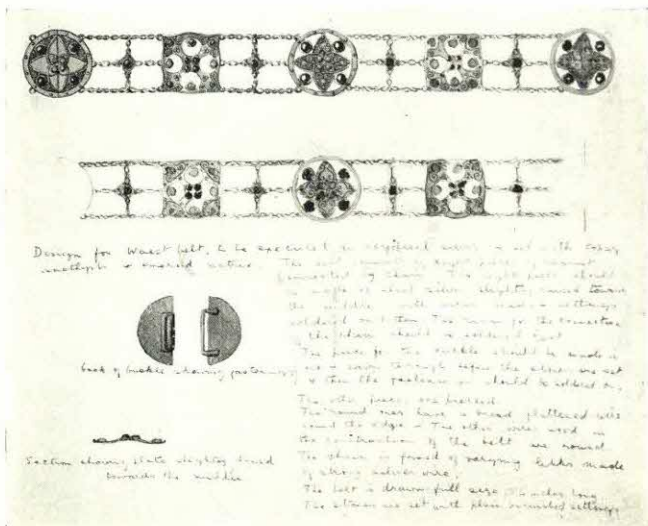 Design for Waist belt, to be executed in oxydised silver & set with
amethysts &
The belt consists of eight pieces
connected by chain. The eight pieces should
be made of sheet silver slightly raised towards
the middle, with settings
soldered on to them. The rings for the connection
of the chain should be soldered
The piece for the buckle should be made in
one & sawn through before the stones are set
& then the fastening should be soldered on.
The other pieces are pierced.
The round ones have a bread flattened wire
round the edge. The other wires used in
the construction of the belt are round
The chain is formed of varying links made
of strong silver wire.
The belt is drawn full size, inches long
The stones are set with plain burnished settings
back of buckle showing fastening
Section showing plate slightly raised
towards the middle